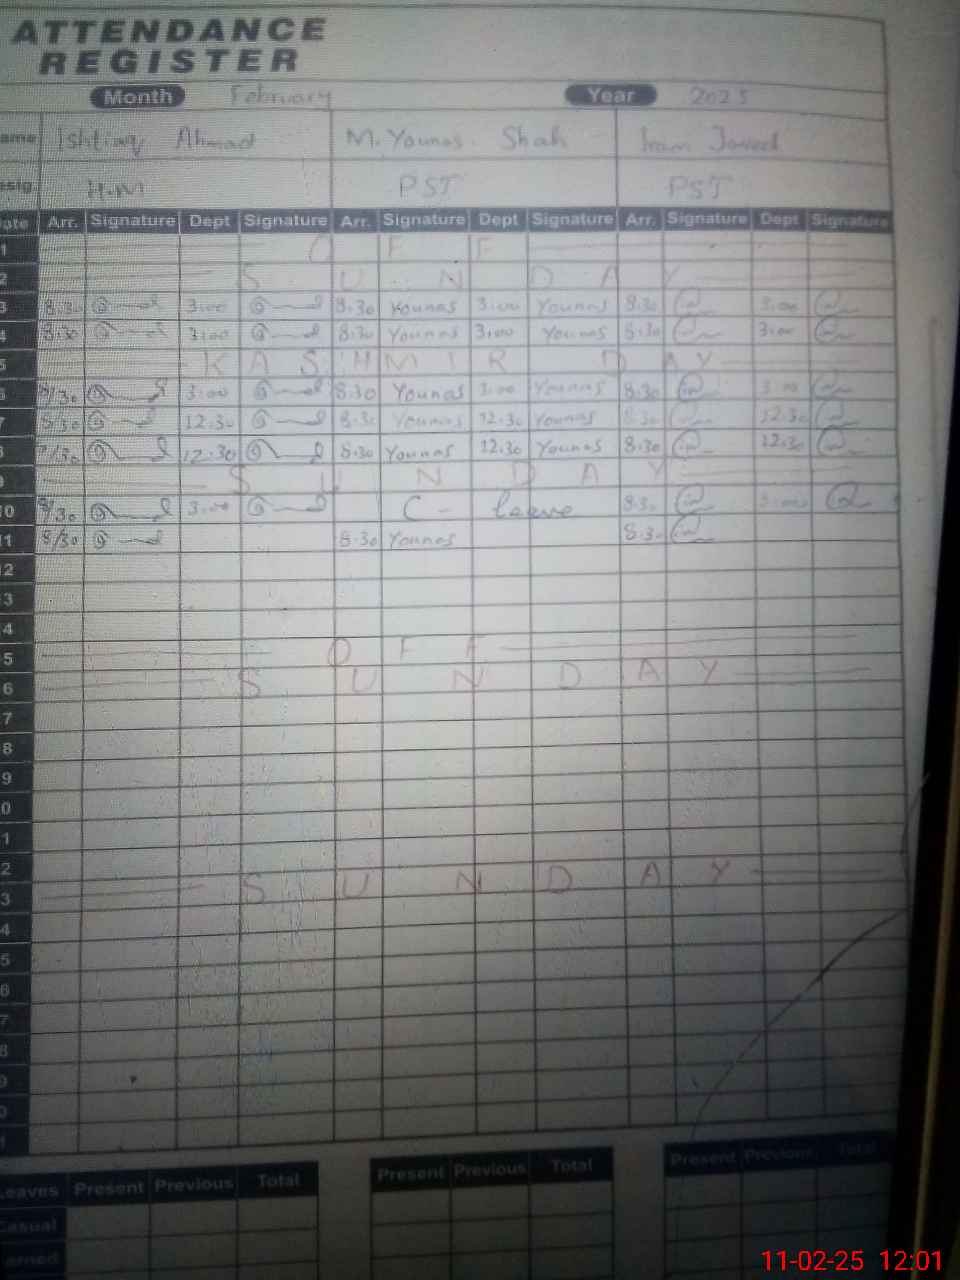 ATTENDANCE
REGISTER
Month February Year 2025
ame Ishtiaq Ahmad M. Younas Shah Iram Javed
esig. H.M PST PST
ate Arr. Signature Dept Signature Arr. Signature Dept Signature Arr. Signature Dept Signature
1 OFF
2 SUNDAY
3 8.30 3.00 8.30 Younas 3.00 Younas 8.30 3.00
4 8.30 3.00 8.30 Younas 3.00 Younas 8.30 3.00
5 KASHMIR DAY
6 8/30 3.00 8.30 Younas 3.00 Younas 8.30 3.00
7 8/30 12.30 8.30 Younas 12.30 Younas 8.30 12.30
8 8/30 12.30 8.30 Younas 12.30 Younas 8.30 12.30
9 SUNDAY
10 8/30 3.00 C - leave 8.30 3.00
11 8/30 8.30 Younas 8.30
12
3
4
5 OFF
6 SUNDAY
7
8
9
0
1
2
3 SUNDAY
4
5
6
7
8
9
0
1
Leaves Present Previous Total Present Previous Total Present Previous Total
Casual
arned
11-02-25 12:01